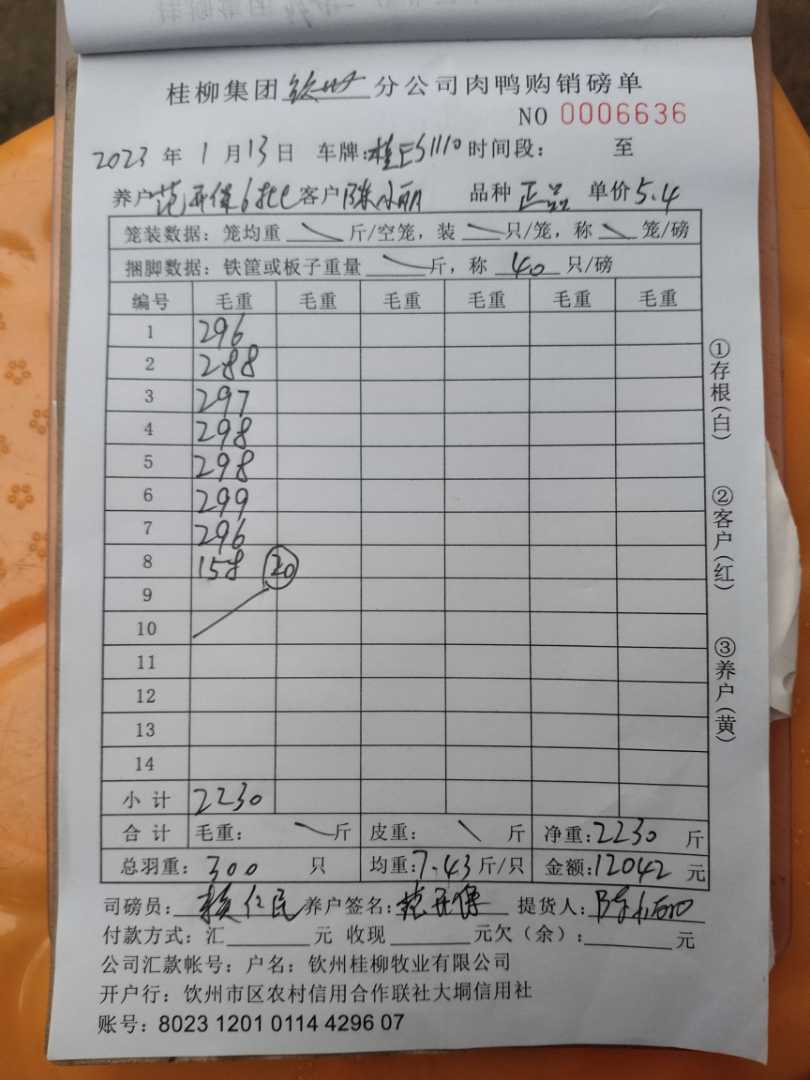 桂柳集团钦州分公司肉鸭购销磅单
NO 0006636
2023 年 1 月 13 日 车牌:桂E51110 时间段: 至
养户范开保6批 客户陈小丽 品种 正品 单价5.4
笼装数据: 笼均重 斤/空笼, 装 只/笼, 称 笼/磅
捆脚数据: 铁筐或板子重量 斤, 称 40 只/磅
编号 毛重 毛重 毛重 毛重 毛重 毛重
1 296
2 288
3 297
4 298
5 298
6 299
7 296
8 158 20
9
10
11
12
13
14
小 计 2230
合 计 毛重: 斤 皮重: 斤 净重:2230 斤
总羽重: 300 只 均重:7.43斤/只 金额:12042元
司磅员: 赖仁民 养户签名: 范开保 提货人: 陈小丽
付款方式: 汇 元 收现 元欠(余): 元
公司汇款帐号: 户名: 钦州桂柳牧业有限公司
开户行: 钦州市区农村信用合作联社大垌信用社
账号: 8023 1201 0114 4296 07
①存根(白)
②客户(红)
③养户(黄)